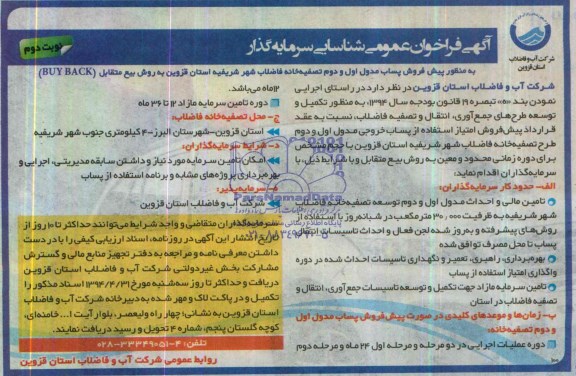 آگهی فراخوان عمومی شناسایی سرمایه گذار
نوبت دوم
شرکت آب و فاضلاب
استان قزوین
به منظور پیش فروش پساب مدول اول و دوم تصفیه‌خانه فاضلاب شهر شریفیه استان قزوین به روش بیع متقابل (BUY BACK)
شرکت آب و فاضلاب استان قزوین در نظر دارد در راستای اجرایی
نمودن بند «ه» تبصره ۹ قانون بودجه سال ۱۳۹۴، به منظور تکمیل و
توسعه طرح‌های جمع‌آوری، انتقال و تصفیه فاضلاب، نسبت به عقد
قرارداد پیش‌فروش امتیاز استفاده از پساب خروجی مدول اول و دوم
طرح تصفیه‌خانه فاضلاب شهر شریفیه استان قزوین با حجم مشخص
برای دوره زمانی محدود و معین به روش بیع متقابل و با شرایط ذیل، با
سرمایه‌گذاران اقدام نماید:
الف- حدود کار سرمایه‌گذاران:
تامین مالی و احداث مدول اول و دوم توسعه تصفیه‌خانه فاضلاب
شهر شریفیه به ظرفیت ۳۰,۰۰۰ مترمکعب در شبانه‌روز با استفاده از
روش‌های پیشرفته و به‌روز شده لجن فعال و احداث تاسیسات انتقال
پساب تا محل مصرف توافق شده
بهره‌برداری، راهبری، تعمیر و نگهداری تاسیسات احداث شده در دوره
واگذاری امتیاز استفاده از پساب
تامین سرمایه مازاد جهت تکمیل و توسعه تاسیسات جمع‌آوری، انتقال و
تصفیه فاضلاب در استان
ب- زمان‌ها و موعدهای کلیدی در صورت پیش فروش پساب مدول اول
و دوم تصفیه‌خانه:
دوره عملیات اجرایی در دو مرحله و مرحله اول ۲۴ ماه و مرحله دوم
۱۲ماه می‌باشد.
دوره تامین سرمایه مازاد ۱۲ تا ۳۶ ماه
ج- محل تصفیه‌خانه فاضلاب:
استان قزوین-شهرستان البرز-۴ کیلومتری جنوب شهر شریفیه
د- شرایط سرمایه‌گذاران:
امکان تامین سرمایه مورد نیاز و داشتن سابقه مدیریتی، اجرایی و
بهره‌برداری پروژه‌های مشابه و برنامه استفاده از پساب
ه- سرمایه‌پذیر:
شرکت آب و فاضلاب استان قزوین
سرمایه‌گذاران متقاضی و واجد شرایط می‌توانند حداکثر تا ۱۰ روز از
تاریخ انتشار این آگهی در روزنامه، اسناد ارزیابی کیفی را با در دست
داشتن معرفی نامه و مراجعه به دفتر تجهیز منابع مالی و گسترش
مشارکت بخش غیردولتی شرکت آب و فاضلاب استان قزوین
دریافت و حداکثر تا روز سه‌شنبه مورخ ۱۳۹۴/۴/۳۱ اسناد مذکور را
تکمیل و در پاکت لاک و مهر شده به دبیرخانه شرکت آب و فاضلاب
استان قزوین به نشانی: چهار راه ولیعصر، بلوار آیت ا... خامنه‌ای،
کوچه گلستان پنجم، شماره ۴ تحویل و رسید دریافت نمایند.
تلفن: ۴-۳۳۳۴۹۰۵۱-۰۲۸
روابط عمومی شرکت آب و فاضلاب استان قزوین
ParsNamadData